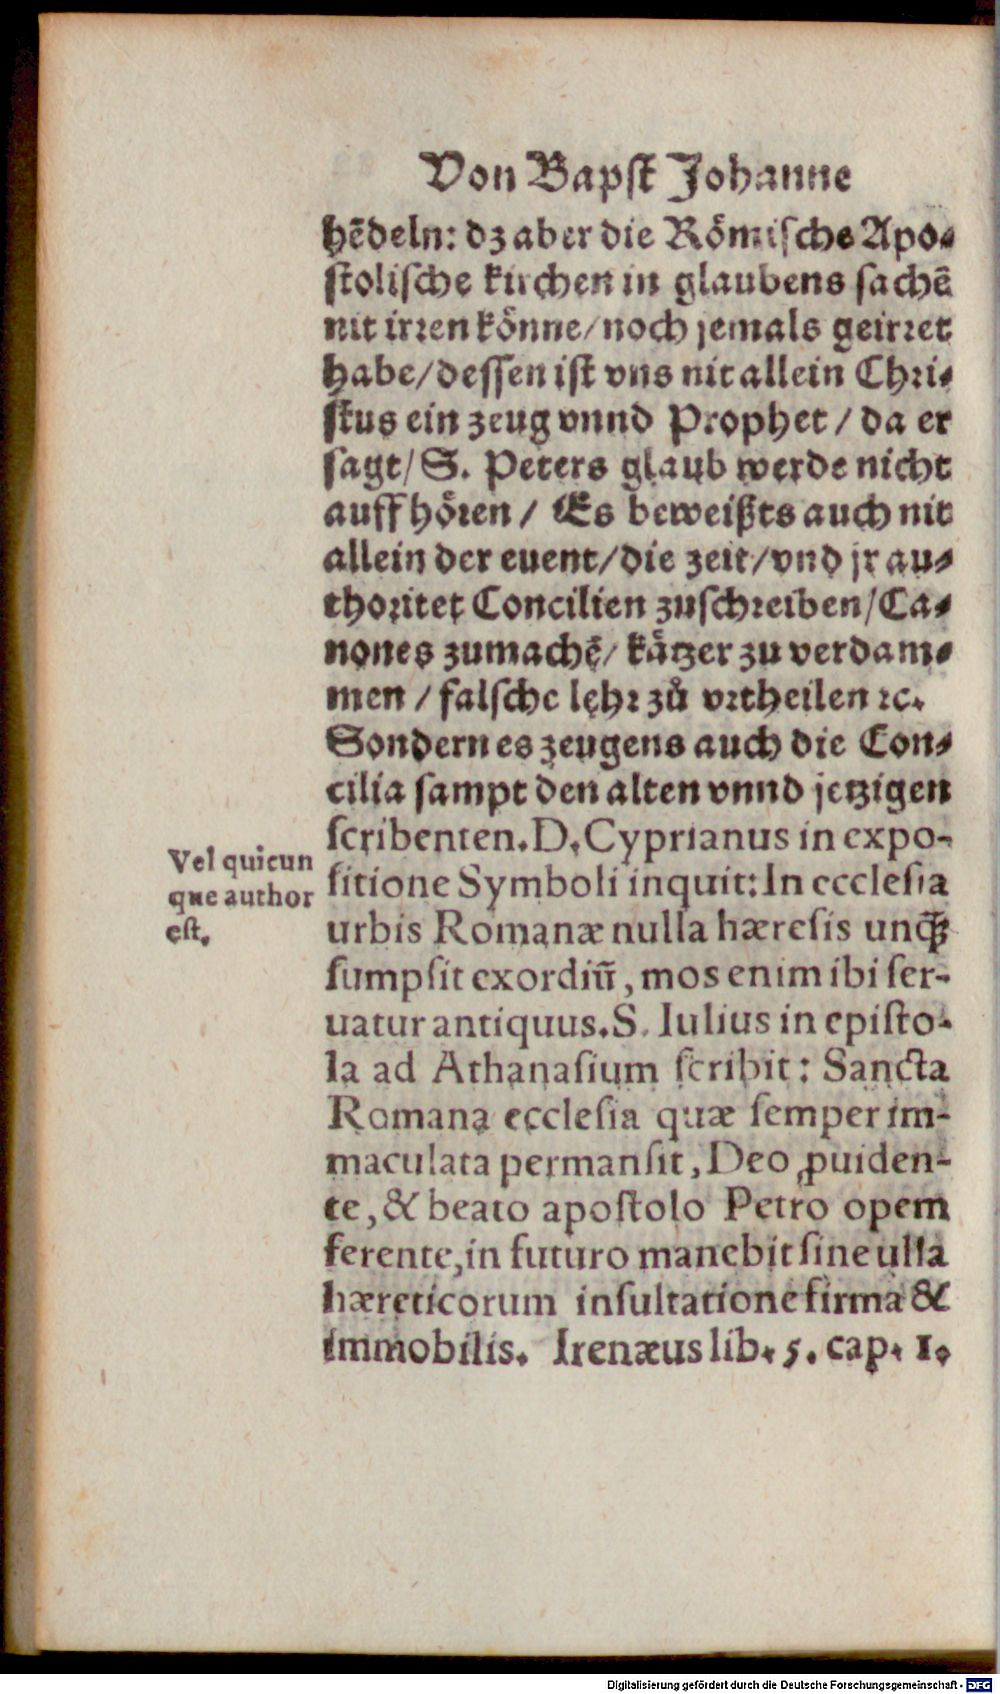 Von Bapst Johanne
hẽdeln: dz aber die Römische Apo-
stolische kirchen in glaubens sachẽ
nit irren könne/ noch jemals geirret
habe/ dessen ist vns nit allein Chri-
stus ein zeug vnnd Prophet/ da er
sagt/ S. Peters glaub werde nicht
auffhören/ Es beweißts auch nit
allein der euent/ die zeit/ vnd jr au-
thoritet Concilien zuschreiben/ Ca-
nones zumachẽ/ kätzer zu verdam-
men/ falsche lehr zů vrtheilen ꝛc.
Sondern es zeugens auch die Con-
cilia sampt den alten vnnd jetzigen
scribenten. D. Cyprianus in expo-
Vel quicun
que author
est.
sitione Symboli inquit: In ecclesia
urbis Romanæ nulla hæresis unq̃
sumpsit exordiũ, mos enim ibi ser-
uatur antiquus. S. Iulius in episto-
la ad Athanasium scribit: Sancta
Romana ecclesia quæ semper im-
maculata permansit, Deo ꝓuiden-
te, & beato apostolo Petro opem
ferente, in futuro manebit sine ulla
hæreticorum insultatione firma &
immobilis. Irenæus lib. 5. cap. 1.
Digitalisierung gefördert durch die Deutsche Forschungsgemeinschaft - DFG